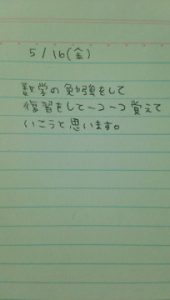 5/16(金)
数学の勉強をして
復習をして一つ一つ覚えて
いこうと思います。